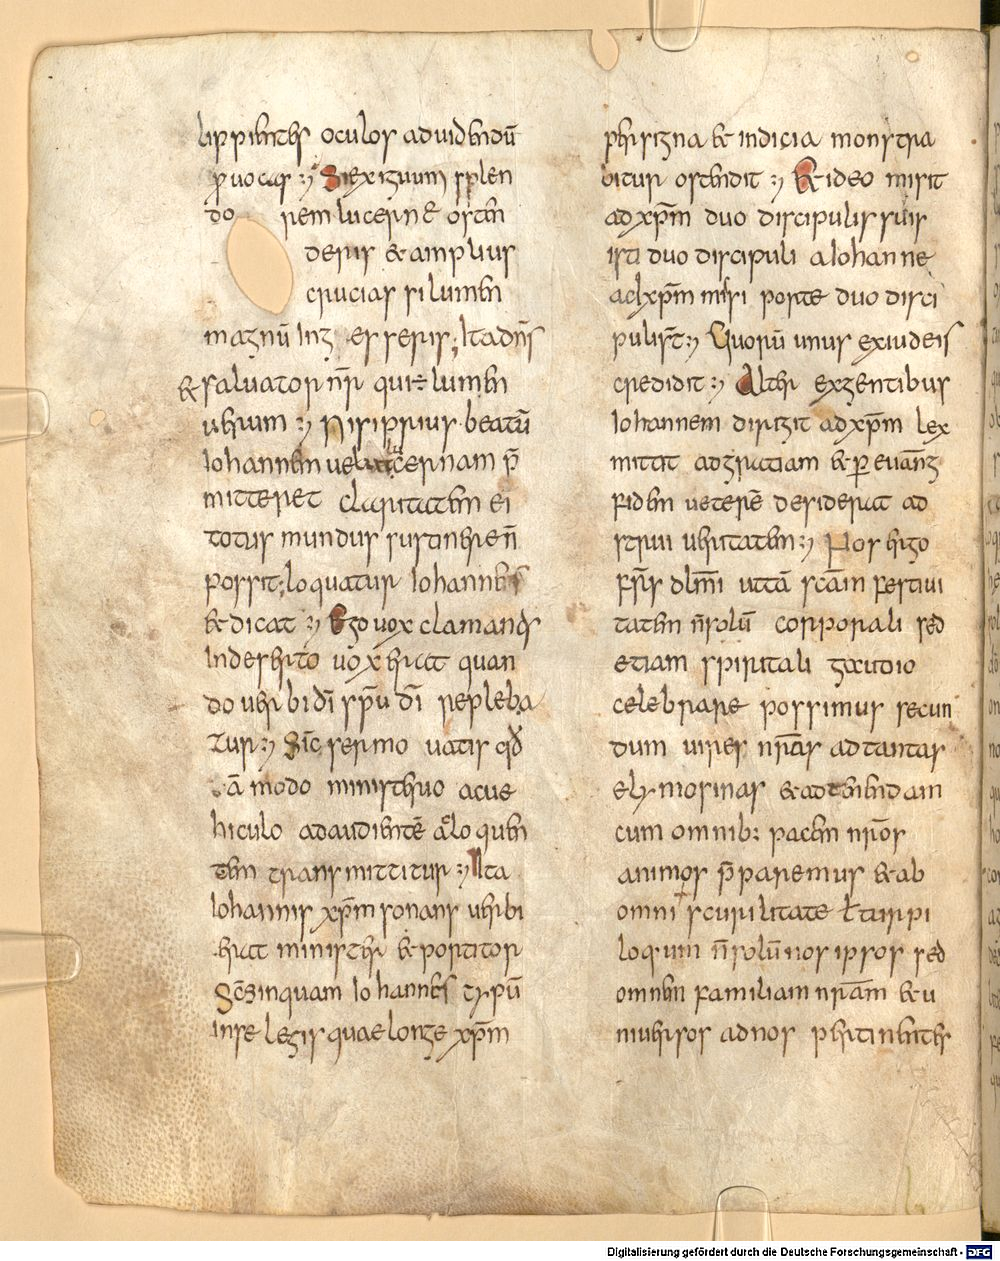 lippientes oculos aduidendū
ꝓuocas :⁊ Siexiguum splen
do rem lucernę osten
deris & amplius
crucias si lumen
magnū Ing es seris; Itadn̄s
& saluator nr̄ qui ÷ lumen
uerum :⁊ Nisiprius beatū
Iohannem uelutlucernam p̄
mitteret claritatem ei
totus mundus sustinere n̄
possit; loquatur Iohannes
& dicat :⁊ Ego uox clamantis
Indeserto uox erat quan
do uerbi dī spū dī repleba
tur :⁊ Sic sermo uatis qđ
tā modo ministerio acue
hiculo adaudientē aloquen
tem transmittitur :⁊ Ita
Iohannis xp̄m sonans uerbi
erat minister & portitor
Scēsinquam Iohannes typū
inse legis quaelonge xp̄m
persigna & indicia monstra
bitur ostendit :⁊ & ideo misit
adxp̄m duo discipulis suis
isti duo discipuli aIohanne
adxp̄m misi porte duo disci
pulisst̄ :⁊ Quorū unus exiudeis
credidit :⁊ Alter exgentibus
Iohannem dirigit adxp̄m lex
mittit adgratiam & ꝑ euāng
fidem ueterē desiderat ad
strui ueritatem :⁊ Nos ergo
fr̄s dlm̄i uttā scām festiui
tatem n̄solū corporali sed
etiam spiritali gaudio
celebrare possimus secun
dum uires nrās adtantas
elymosinas & adtenendam
cum omnib: pacem nrōs
animos p̄paremus & ab
omni scurilitate ł turpi
loquum n̄solū nos ipsos sed
omnem familiam nrām & u
niuersos adnos pertinentes
Digitalisierung gefördert durch die Deutsche Forschungsgemeinschaft - DFG